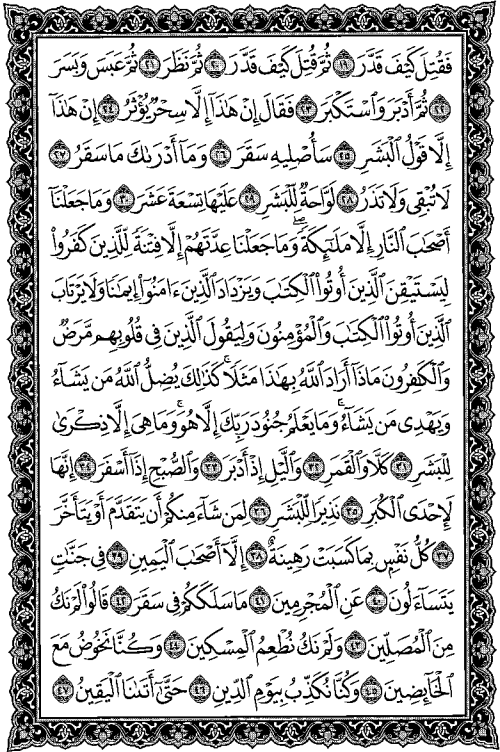 فَقُتِلَ كَيْفَ قَدَّرَ ۝١٩ ثُمَّ قُتِلَ كَيْفَ قَدَّرَ ۝٢٠ ثُمَّ نَظَرَ ۝٢١ ثُمَّ عَبَسَ وَبَسَرَ
۝٢٢ ثُمَّ أَدْبَرَ وَٱسْتَكْبَرَ ۝٢٣ فَقَالَ إِنْ هَٰذَآ إِلَّا سِحْرٌ يُؤْثَرُ ۝٢٤ إِنْ هَٰذَآ
إِلَّا قَوْلُ ٱلْبَشَرِ ۝٢٥ سَأُصْلِيهِ سَقَرَ ۝٢٦ وَمَآ أَدْرَىٰكَ مَا سَقَرُ ۝٢٧
لَا تُبْقِى وَلَا تَذَرُ ۝٢٨ لَوَّاحَةٌ لِّلْبَشَرِ ۝٢٩ عَلَيْهَا تِسْعَةَ عَشَرَ ۝٣٠ وَمَا جَعَلْنَآ
أَصْحَٰبَ ٱلنَّارِ إِلَّا مَلَٰٓئِكَةً ۙ وَمَا جَعَلْنَا عِدَّتَهُمْ إِلَّا فِتْنَةً لِّلَّذِينَ كَفَرُوا۟
لِيَسْتَيْقِنَ ٱلَّذِينَ أُوتُوا۟ ٱلْكِتَٰبَ وَيَزْدَادَ ٱلَّذِينَ ءَامَنُوٓا۟ إِيمَٰنًا وَلَا يَرْتَابَ
ٱلَّذِينَ أُوتُوا۟ ٱلْكِتَٰبَ وَٱلْمُؤْمِنُونَ وَلِيَقُولَ ٱلَّذِينَ فِى قُلُوبِهِم مَّرَضٌ
وَٱلْكَٰفِرُونَ مَاذَآ أَرَادَ ٱللَّهُ بِهَٰذَا مَثَلًا ۚ كَذَٰلِكَ يُضِلُّ ٱللَّهُ مَن يَشَآءُ
وَيَهْدِى مَن يَشَآءُ ۚ وَمَا يَعْلَمُ جُنُودَ رَبِّكَ إِلَّا هُوَ ۚ وَمَا هِىَ إِلَّا ذِكْرَىٰ
لِلْبَشَرِ ۝٣١ كَلَّا وَٱلْقَمَرِ ۝٣٢ وَٱلَّيْلِ إِذْ أَدْبَرَ ۝٣٣ وَٱلصُّبْحِ إِذَآ أَسْفَرَ ۝٣٤ إِنَّهَا
لَإِحْدَى ٱلْكُبَرِ ۝٣٥ نَذِيرًا لِّلْبَشَرِ ۝٣٦ لِمَن شَآءَ مِنكُمْ أَن يَتَقَدَّمَ أَوْ يَتَأَخَّرَ
۝٣٧ كُلُّ نَفْسٍۭ بِمَا كَسَبَتْ رَهِينَةٌ ۝٣٨ إِلَّآ أَصْحَٰبَ ٱلْيَمِينِ ۝٣٩ فِى جَنَّٰتٍ
يَتَسَآءَلُونَ ۝٤٠ عَنِ ٱلْمُجْرِمِينَ ۝٤١ مَا سَلَكَكُمْ فِى سَقَرَ ۝٤٢ قَالُوا۟ لَمْ نَكُ
مِنَ ٱلْمُصَلِّينَ ۝٤٣ وَلَمْ نَكُ نُطْعِمُ ٱلْمِسْكِينَ ۝٤٤ وَكُنَّا نَخُوضُ مَعَ
ٱلْخَآئِضِينَ ۝٤٥ وَكُنَّا نُكَذِّبُ بِيَوْمِ ٱلدِّينِ ۝٤٦ حَتَّىٰٓ أَتَىٰنَا ٱلْيَقِينُ ۝٤٧